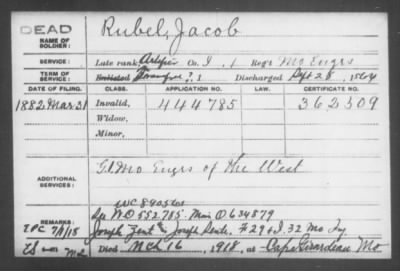 DEAD
NAME OF SOLDIER: Rubel, Jacob
SERVICE: Late rank, Artifr Co. I, 1 Reg't Mo Engrs
TERM OF SERVICE: Enlisted 1 Discharged Sept 28, 1864
DATE OF FILING. CLASS. APPLICATION NO. LAW. CERTIFICATE NO.
1882 Mar 31 Invalid, 444785 362509
Widow,
Minor,
ADDITIONAL SERVICES: G. Mo Engrs of the West
REMARKS: WO 552785. Min O 634879
Joseph F 29 & I. 32 Mo Inf.
Died Mch 16, 1918, at Cape Girardeau Mo.